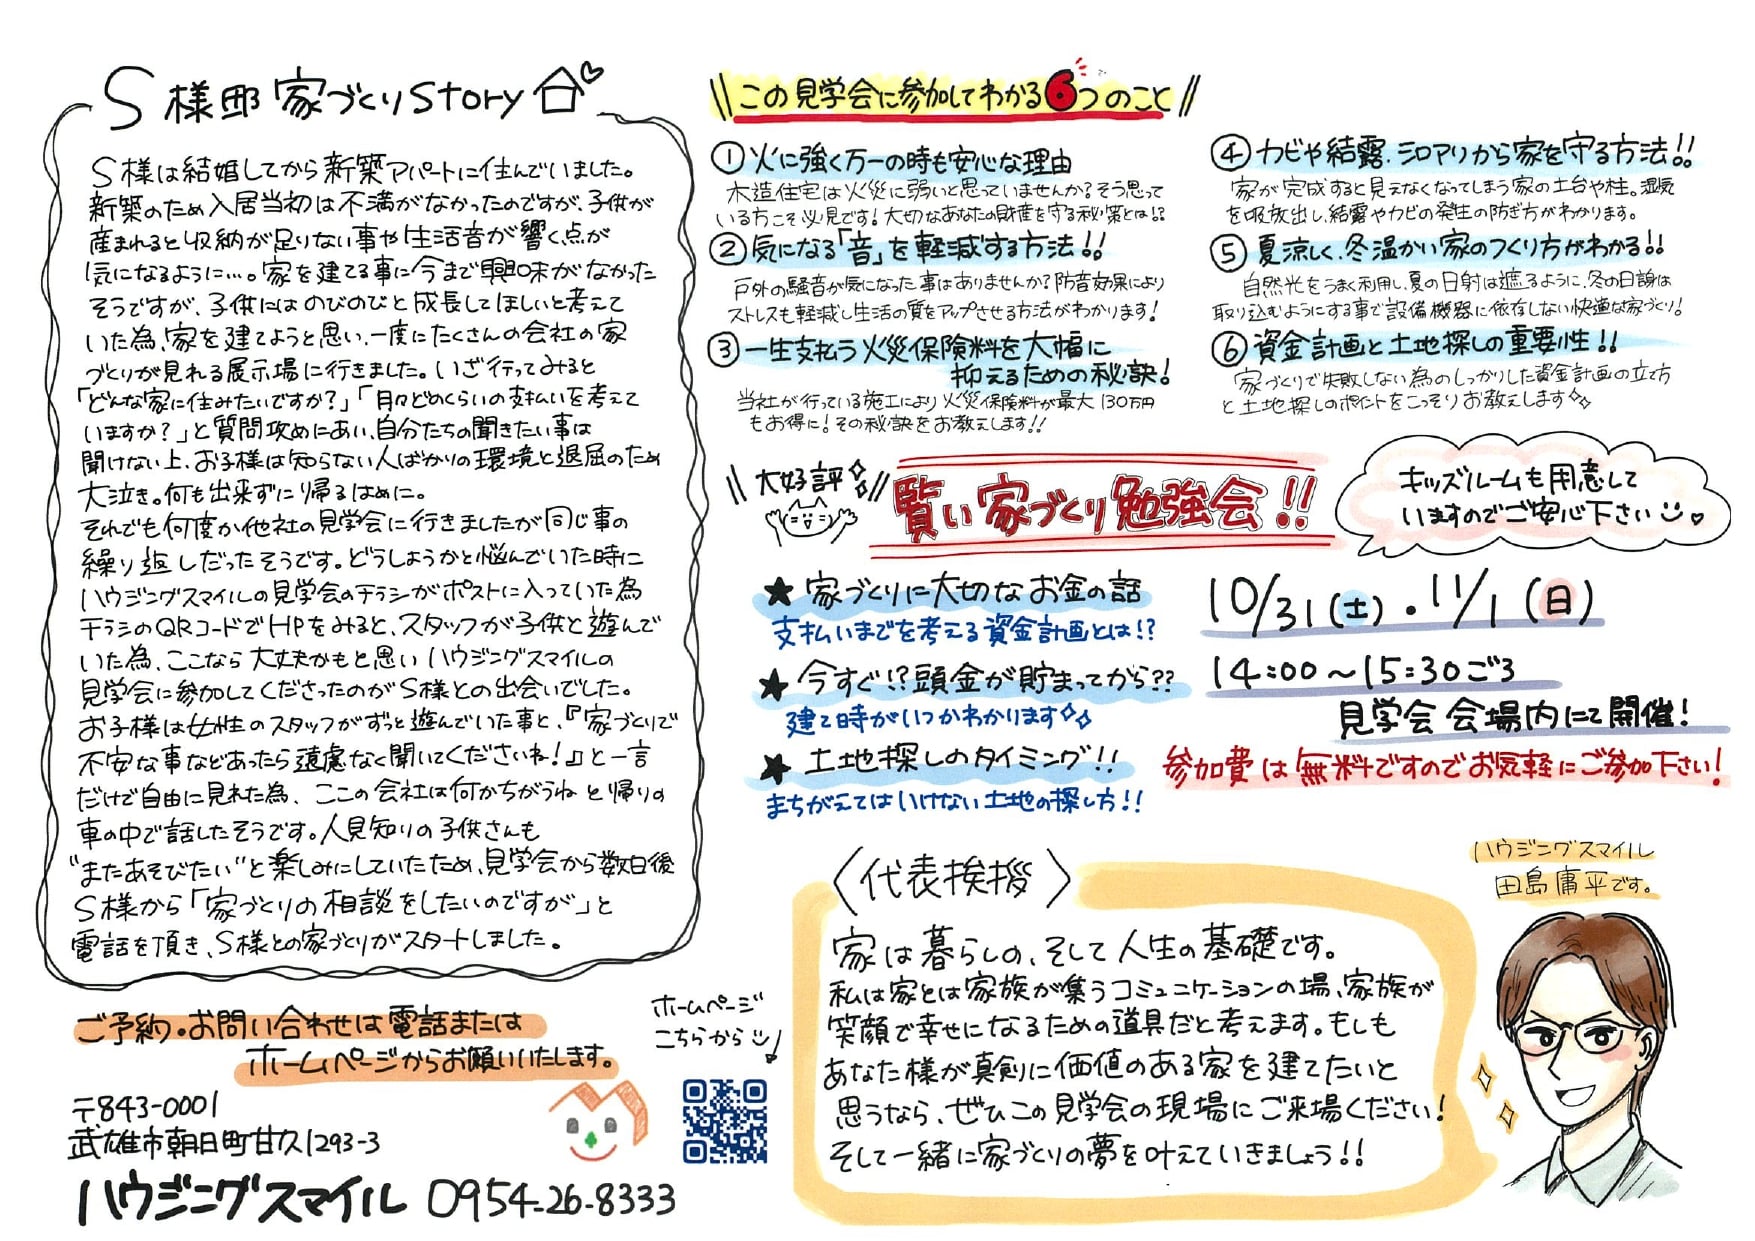 S様邸 家づくりStory
S様は結婚してから新築アパートに住んでいました。
新築のため入居当初は不満がなかったのですが、子供が
産まれると収納が足りない事や生活音が響く点が
気になるように…。家を建てる事に今まで興味がなかった
そうですが、子供にはのびのびと成長してほしいと考えて
いた為、家を建てようと思い、一度にたくさんの会社の家
づくりが見れる展示場に行きました。いざ行ってみると
「どんな家に住みたいですか?」「月々どのくらいの支払いを考えて
いますか?」と質問攻めにあい、自分たちの聞きたい事は
聞けない上、お子様は知らない人ばかりの環境と退屈のため
大泣き。何も出来ずに帰るはめに。
それでも何度か他社の見学会に行きましたが同じ事の
繰り返しだったそうです。どうしようかと悩んでいた時に
ハウジングスマイルの見学会のチラシがポストに入っていた為
チラシのQRコードでHPをみると、スタッフが子供と遊んで
いた為、ここなら大丈夫かもと思いハウジングスマイルの
見学会に参加してくださったのがS様との出会いでした。
お子様は女性のスタッフがずっと遊んでいた事と、『家づくりで
不安な事などあったら遠慮なく聞いてくださいね!』と一言
だけで自由に見れた為、ここの会社は何かちがうねと帰りの
車の中で話したそうです。人見知りの子供さんも
"またあそびたい"と楽しみにしていたため、見学会から数日後
S様から「家づくりの相談をしたいのですが」と
電話を頂き、S様との家づくりがスタートしました。
ご予約・お問い合わせは電話または
ホームページからお願いいたします。
ホームページ
こちらから
〒843-0001
武雄市朝日町甘久1293-3
ハウジングスマイル 0954-26-8333
\\この見学会に参加してわかる6つのこと//
①火に強く万一の時も安心な理由
木造住宅は火災に弱いと思っていませんか?そう思って
いる方こそ必見です!大切なあなたの財産を守る秘策とは!?
②気になる「音」を軽減する方法!!
戸外の騒音が気になった事はありませんか?防音効果により
ストレスも軽減し生活の質をアップさせる方法がわかります!
③一生支払う火災保険料を大幅に
抑えるための秘訣!
当社が行っている施工により火災保険料が最大130万円
もお得に!その秘訣をお教えします!!
④カビや結露、シロアリから家を守る方法!!
家が完成すると見えなくなってしまう家の土台や柱。湿気
を吸放出し、結露やカビの発生の防ぎ方がわかります。
⑤夏涼しく、冬温かい家のつくり方がわかる!!
自然光をうまく利用し、夏の日射は遮るように、冬の日射は
取り込むようにする事で設備機器に依存しない快適な家づくり!
⑥資金計画と土地探しの重要性!!
家づくりで失敗しない為のしっかりした資金計画の立て方
と土地探しのポイントをこっそりお教えします
\\大好評//
賢い家づくり勉強会!!
キッズルームも用意して
いますのでご安心下さい
★家づくりに大切なお金の話
支払いまでを考える資金計画とは!?
★今すぐ!?頭金が貯まってから??
建て時がいつかわかります
★土地探しのタイミング!!
まちがえてはいけない土地の探し方!!
10/31(土)・11/1(日)
14:00～15:30ごろ
見学会会場内にて開催!
参加費は無料ですのでお気軽にご参加下さい!
〈代表挨拶〉
ハウジングスマイル
田島庸平です。
家は暮らしの、そして人生の基礎です。
私は家とは家族が集うコミュニケーションの場、家族が
笑顔で幸せになるための道具だと考えます。もしも
あなた様が真剣に価値のある家を建てたいと
思うなら、ぜひこの見学会の現場にご来場ください!
そして一緒に家づくりの夢を叶えていきましょう!!